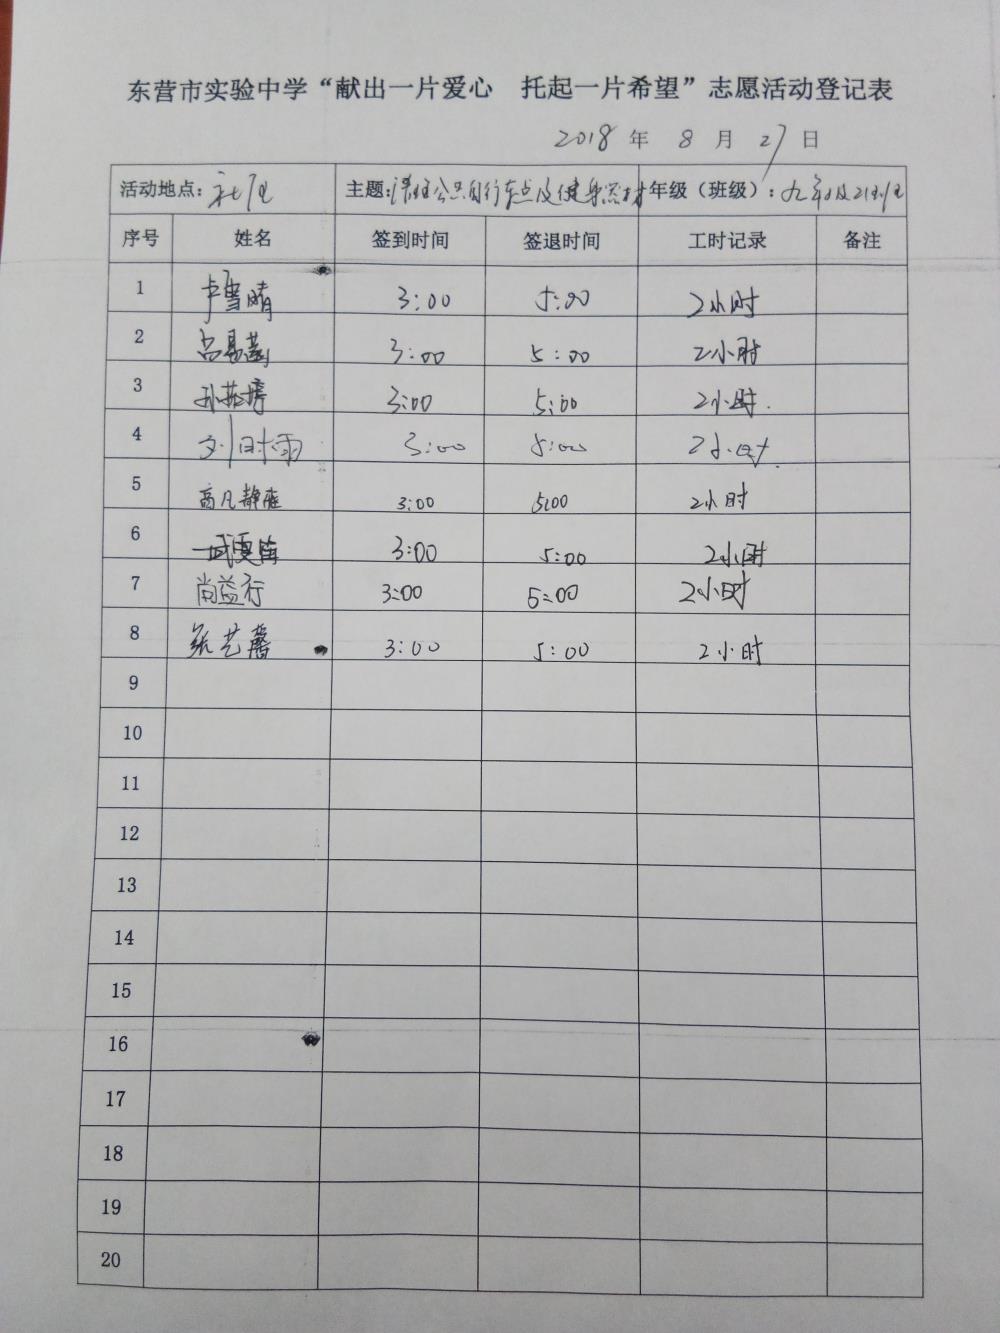 东营市实验中学“献出一片爱心 托起一片希望”志愿活动登记表
2018 年 8 月 27 日
活动地点：社区 主题：清理公共自行车点及健身器材 年级（班级）：九年级21班
序号 姓名 签到时间 签退时间 工时记录 备注
1 卢雪晴 3:00 5:00 2小时
2 吕易蓊 3:00 5:00 2小时
3 孙 3:00 5:00 2小时.
4 刘时雨 3:00 5:00 2小时.
5 高凡静雅 3:00 5:00 2小时
6 3:00 5:00 2小时
7 尚益行 3:00 5:00 2小时
8 张艺馨 3:00 5:00 2小时
9
10
11
12
13
14
15
16
17
18
19
20